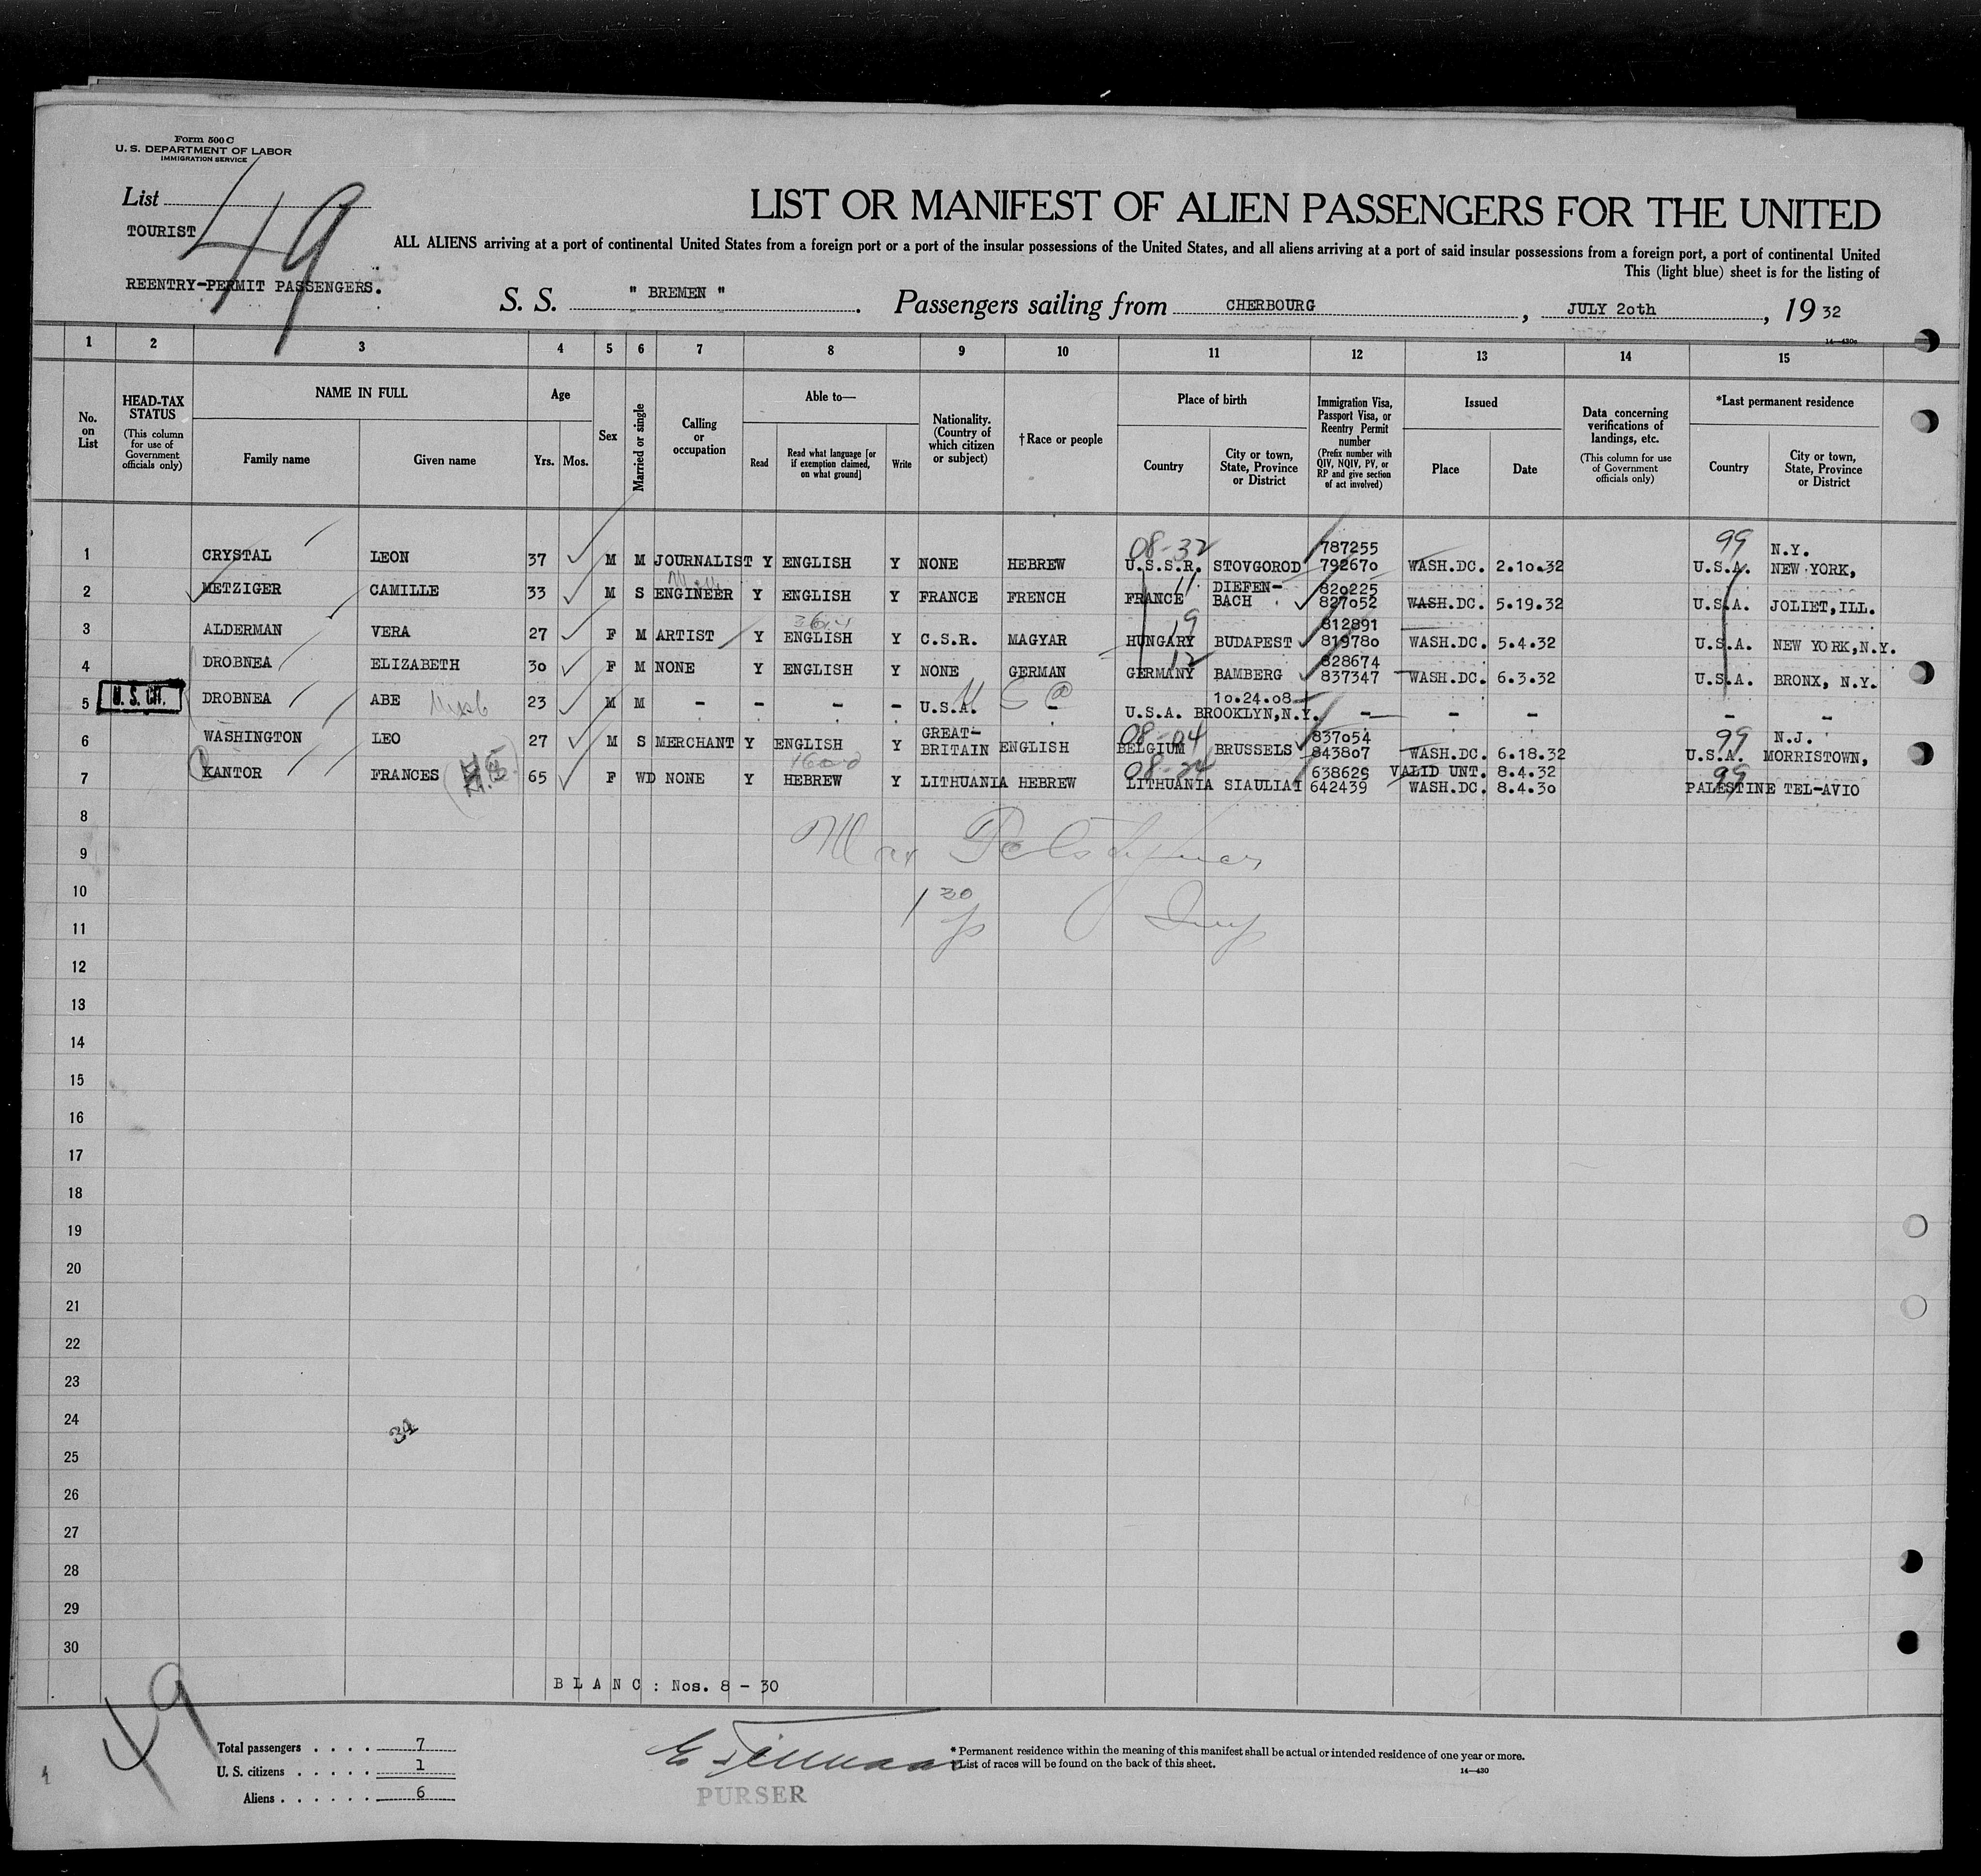 Form 500 C
U. S. DEPARTMENT OF LABOR
IMMIGRATION SERVICE
List 49
TOURIST
REENTRY-PERMIT PASSENGERS.
LIST OR MANIFEST OF ALIEN PASSENGERS FOR THE UNITED
ALL ALIENS arriving at a port of continental United States from a foreign port or a port of the insular possessions of the United States, and all aliens arriving at a port of said insular possessions from a foreign port, a port of continental United
This (light blue) sheet is for the listing of
S. S. " BREMEN ". Passengers sailing from CHERBOURG, JULY 20th, 1932
14—430c
1 2 3 4 5 6 7 8 9 10 11 12 13 14 15
No. on List
HEAD-TAX STATUS (This column for use of Government officials only)
NAME IN FULL
Family name Given name
Age
Yrs. Mos.
Sex
Married or single
Calling or occupation
Able to—
Read Read what language [or if exemption claimed, on what ground] Write
Nationality. (Country of which citizen or subject)
†Race or people
Place of birth
Country City or town, State, Province or District
Immigration Visa, Passport Visa, or Reentry Permit number (Prefix number with QIV, NQIV, PV, or RP and give section of act involved)
Issued
Place Date
Data concerning verifications of landings, etc. (This column for use of Government officials only)
*Last permanent residence
Country City or town, State, Province or District
08-32 787255 99 N.Y.
1 CRYSTAL LEON 37 M M JOURNALIST Y ENGLISH Y NONE HEBREW U.S.S.R. STOVGOROD 792670 WASH.DC. 2.10.32 U.S.A. NEW YORK,
11 DIEFEN- 820225
2 METZIGER CAMILLE 33 M S ENGINEER Y ENGLISH Y FRANCE FRENCH FRANCE BACH 827052 WASH.DC. 5.19.32 U.S.A. JOLIET,ILL.
9 812891
3 ALDERMAN VERA 27 F M ARTIST Y ENGLISH Y C.S.R. MAGYAR HUNGARY BUDAPEST 819780 WASH.DC. 5.4.32 U.S.A. NEW YORK,N.Y.
12 828674
4 DROBNEA ELIZABETH 30 F M NONE Y ENGLISH Y NONE GERMAN GERMANY BAMBERG 837347 WASH.DC. 6.3.32 U.S.A. BRONX, N.Y.
U S C 10.24.08
5 U. S. CIT. DROBNEA ABE 23 M M - - - - U.S.A. - U.S.A. BROOKLYN,N.Y. - - - - -
GREAT- 08-04 837054 99 N.J.
6 WASHINGTON LEO 27 M S MERCHANT Y ENGLISH Y BRITAIN ENGLISH BELGIUM BRUSSELS 843807 WASH.DC. 6.18.32 U.S.A. MORRISTOWN,
08-24 638629 VALID UNT. 8.4.32 99
7 KANTOR FRANCES 65 F WD NONE Y HEBREW Y LITHUANIA HEBREW LITHUANIA SIAULIAI 642439 WASH.DC. 8.4.30 PALESTINE TEL-AVIO
8
9
10
11
12
13
14
15
16
17
18
19
20
21
22
23
24
34
25
26
27
28
29
30
BLANC: Nos. 8 - 30
49
Total passengers . . . . 7
U. S. citizens . . . . . 1
Aliens . . . . . . 6
PURSER
* Permanent residence within the meaning of this manifest shall be actual or intended residence of one year or more.
† List of races will be found on the back of this sheet.
14—430